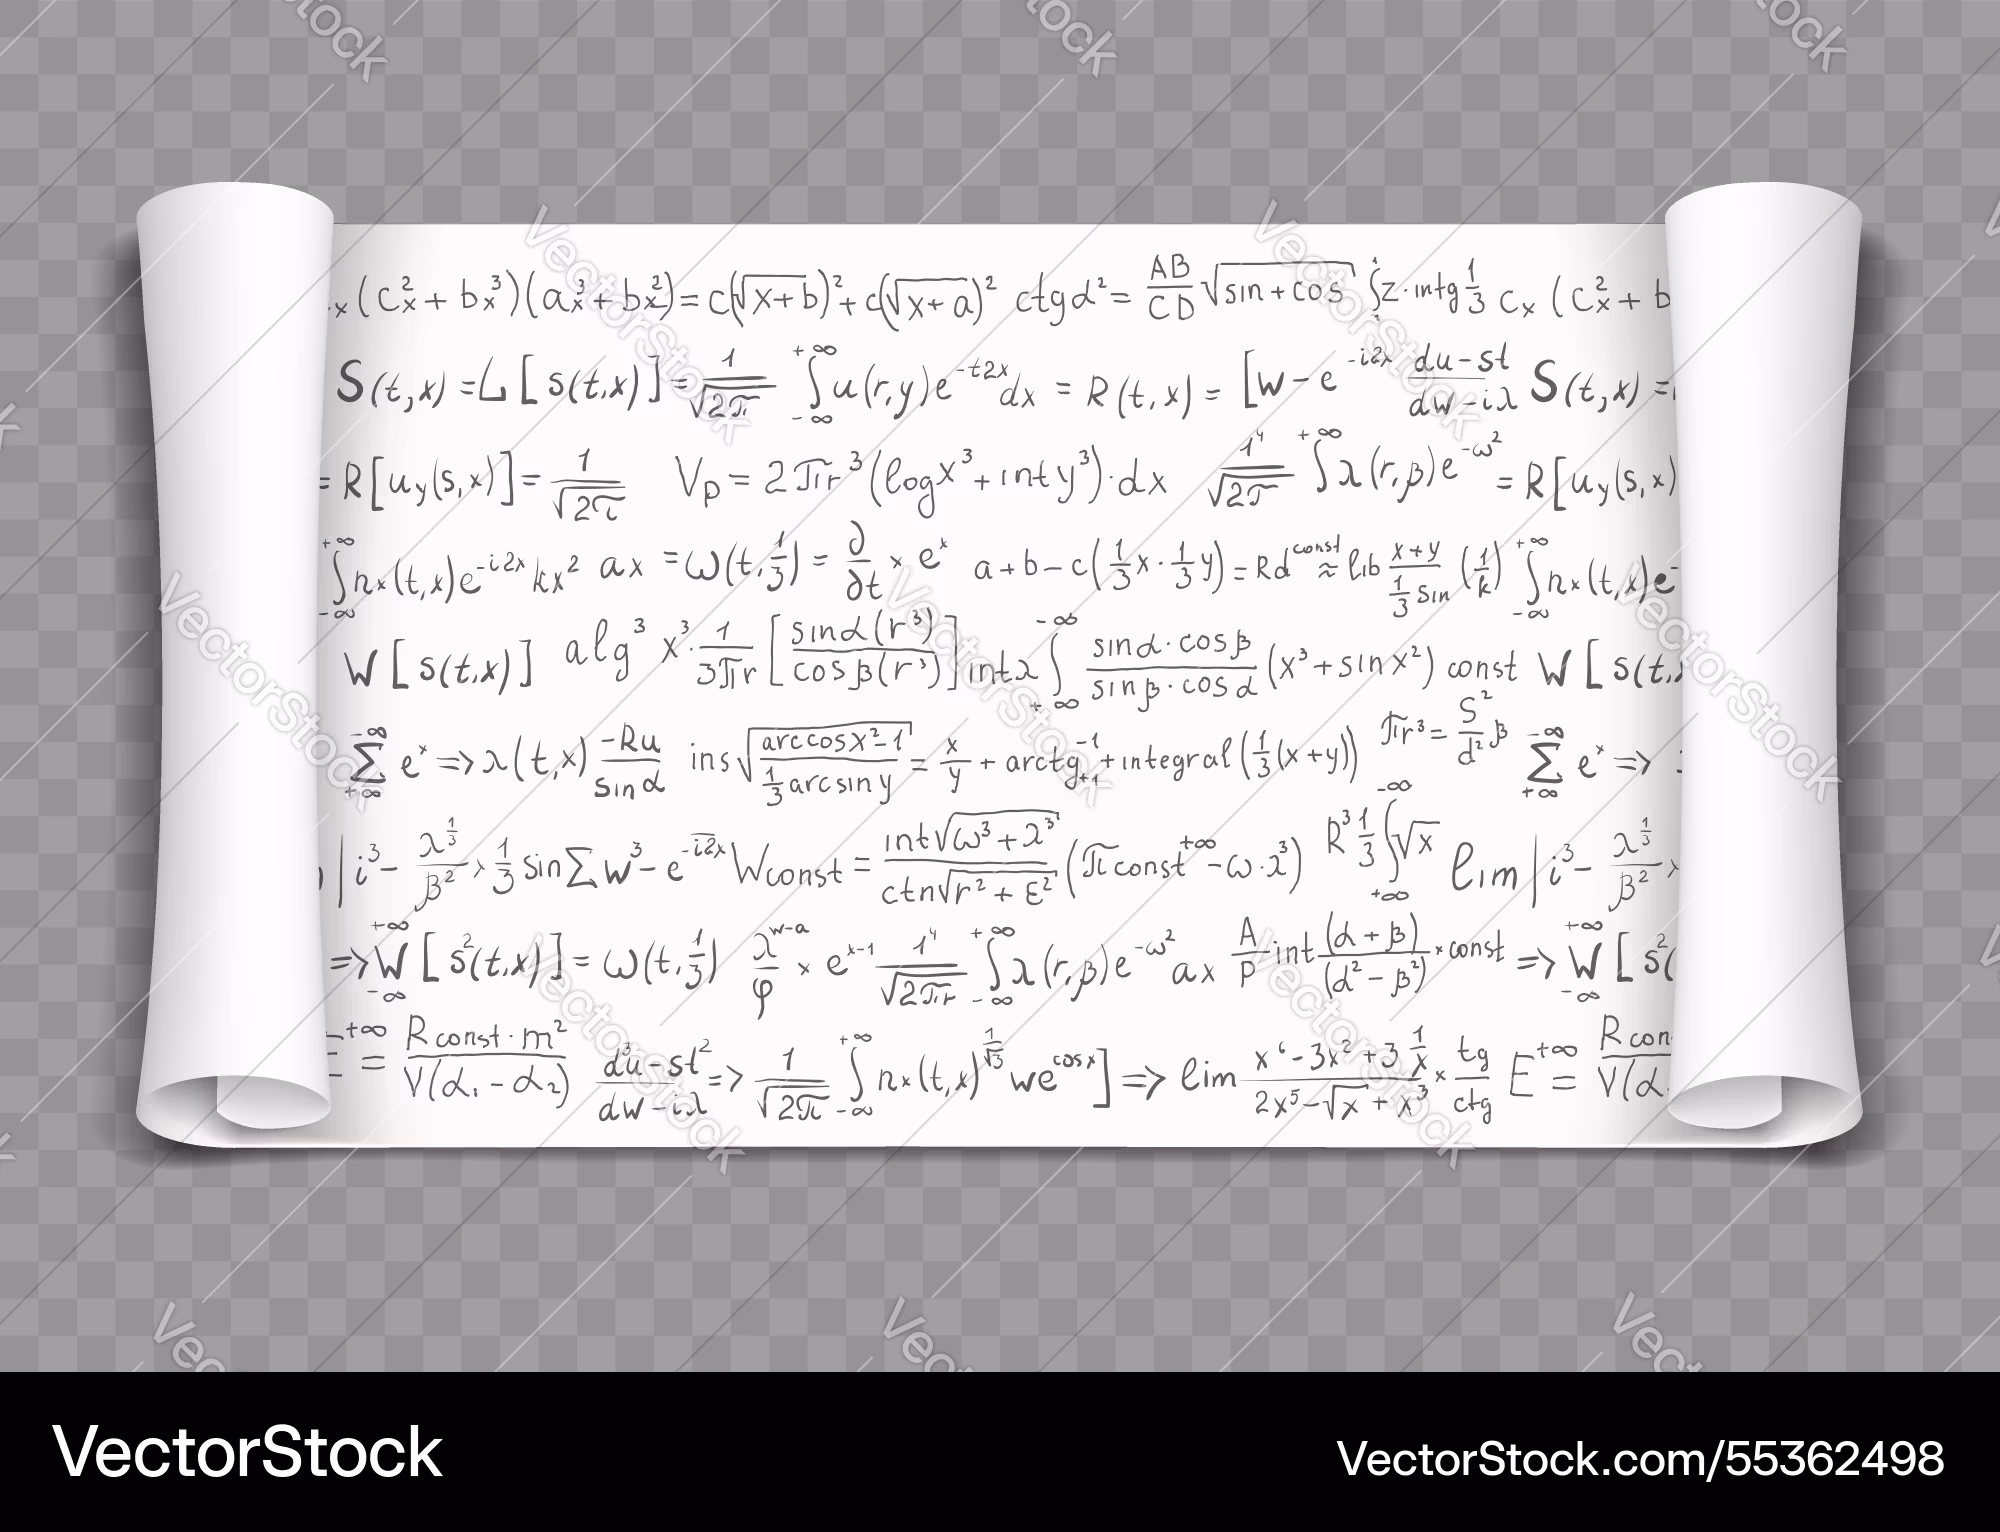 x (c²ₓ + bx³)(aₓ³ + bₓ²) = c(√x+b)² + c(√x+a)² ctgα² = AB/CD √sin + cos ∫z·intg 1/3 cₓ (c²ₓ + b
S(t,x) = L[s(t,x)] = 1/√2π ∫ +∞ -∞ u(r,y)e^-t2x dx = R(t,x) = [w - e^-i2x du-st/dw-iλ S(t,x) =
= R[u_y(s,x)] = 1/√2π V_p = 2πr³(log x³ + int y³)·dx 1⁴/√2π ∫ +∞ λ(r,β)e^-ω² = R[u_y(s,x)
∫ +∞ -∞ nₓ(t,x)e^-i2x kx² ax = ω(t,1/3) = ∂/∂t × eˣ a+b-c(1/3 x·1/3 y) = Rd^const ≈ lib x+y/(1/3 sin) (1/k) ∫ +∞ -∞ nₓ(t,x)e^-
W[s(t,x)] alg³ x³·1/3πr [sinα(r³)/cosβ(r³)] intλ ∫ -∞ +∞ sinα·cosβ/sinβ·cosα (x³+sinx²) const W[s(t,x
∑ -∞ +∞ eˣ => λ(t,x) -Ru/sinα ins√(arccosx²-1/(1/3 arcsiny)) = x/y + arctg^-1_+1 + integral(1/3(x+y)) πr³ = S²/d² β ∑ -∞ +∞ eˣ =>
| i³ - λ^1/3/β² × 1/3 sin∑w³ - e^-i2x Wconst = int√ω³+λ³/ctn√r²+ε² (πconst^+∞ - ω·λ³) R³ 1/3 ∫ -∞ +∞ √x lim | i³ - λ^1/3/β² ×
=> W +∞ -∞ [s²(t,x)] = ω(t,1/3) λ^w-a/φ × e^x-1 1⁴/√2πr ∫ +∞ -∞ λ(r,β)e^-ω² ax A/P int (α+β)/(α²-β²) × const => W +∞ -∞ [s²(
E^+∞ = Rconst·m²/V(α₁-α₂) d³u-st²/dw-iλ => 1/√2π ∫ +∞ -∞ nₓ(t,x)^1/√3 we^cosx] => lim x⁶-3x²+3 1/x/2x⁵-√x+x³ × tg/ctg E^+∞ = Rcon/V(α
VectorStock
VectorStock.com/55362498